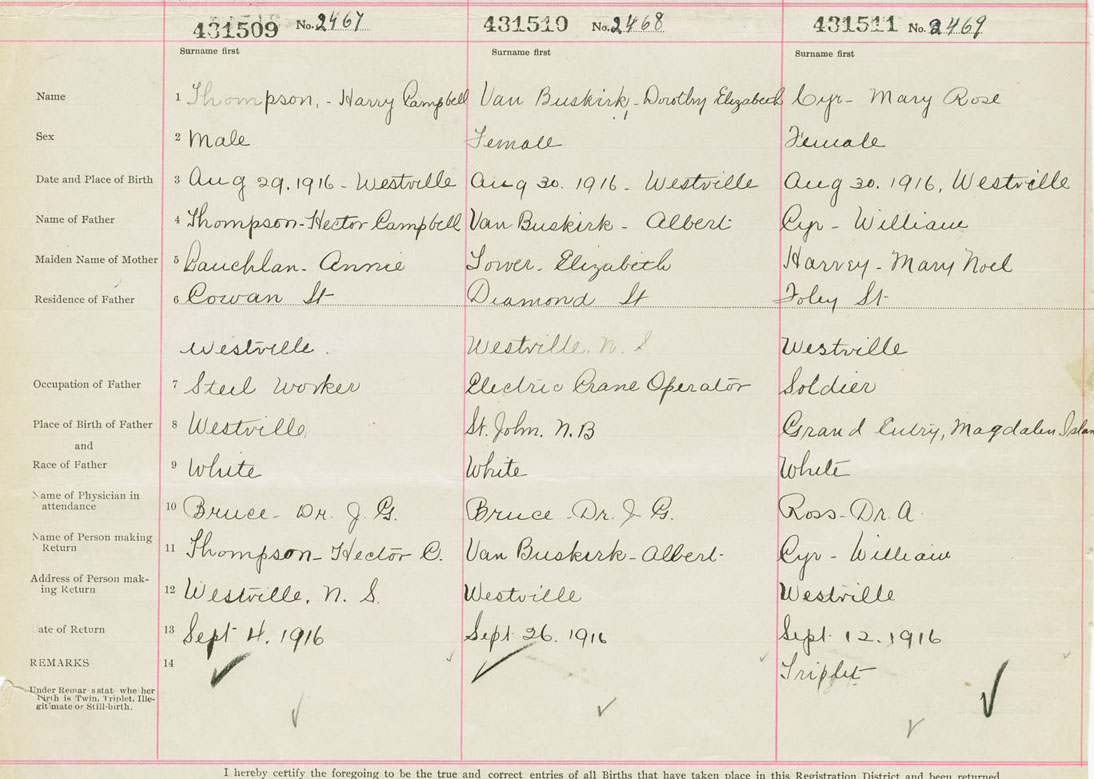 431509 No. 2467 431510 No. 2468 431511 No. 2469
Surname first Surname first Surname first
Name 1 Thompson, - Harry Campbell Van Buskirk, Dorothy Elizabeth Cyr - Mary Rose
Sex 2 Male Female Female
Date and Place of Birth 3 Aug 29, 1916 - Westville Aug 30. 1916 - Westville Aug 30. 1916, Westville
Name of Father 4 Thompson - Hector Campbell Van Buskirk - Albert Cyr - William
Maiden Name of Mother 5 Lauchlan - Annie Tower - Elizabeth Harvey - Mary Noel
Residence of Father 6 Cowan St Diamond St Foley St
Westville. Westville. N. S Westville
Occupation of Father 7 Steel Worker Electric Crane Operator Soldier
Place of Birth of Father 8 Westville St. John. N.B Grand Entry, Magdalen Islan
and
Race of Father 9 White White White
Name of Physician in
attendance 10 Bruce - Dr. J. G. Bruce - Dr. J G. Ross - Dr. A.
Name of Person making
Return 11 Thompson - Hector C. Van Buskirk - Albert Cyr - William
Address of Person mak-
ing Return 12 Westville, N. S. Westville Westville
ate of Return 13 Sept 4. 1916 Sept 26. 1916 Sept. 12. 1916
REMARKS 14 Triplet
Under Remar s stat whe her
Birth is Twin, Triplet, Ille-
gitimate or Still-birth.
I hereby certify the foregoing to be the true and correct entries of all Births that have taken place in this Registration District and been returned